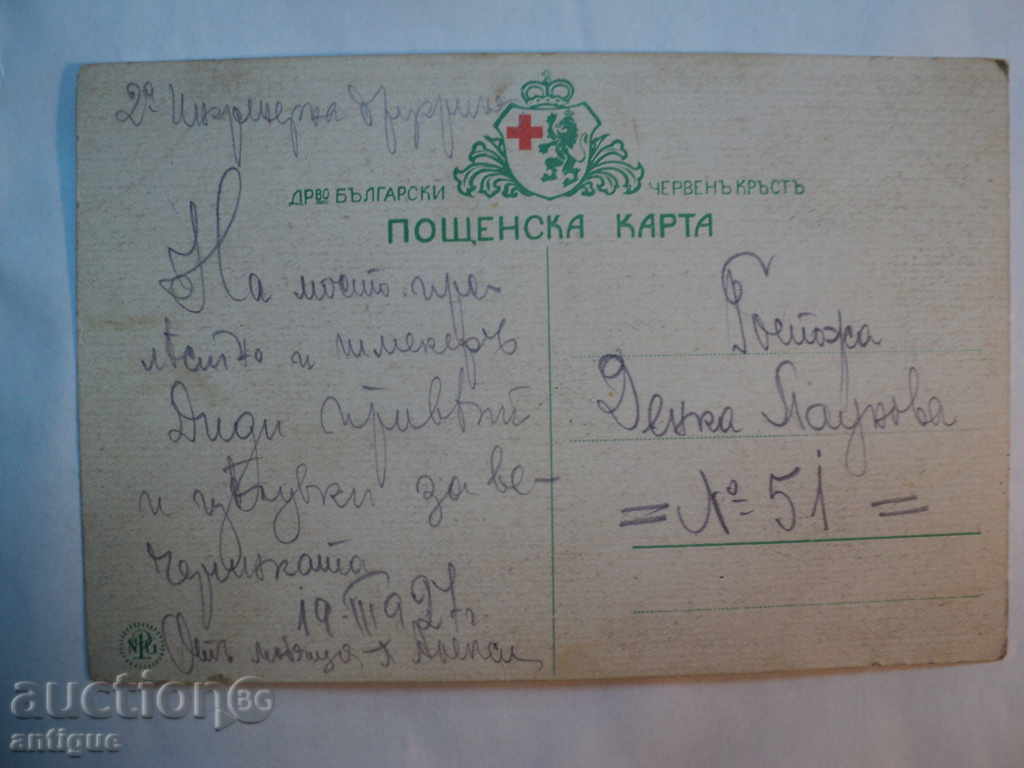 2а Инженерна дружина
ДРВО БЪЛГАРСКИ ЧЕРВЕНЪ КРЪСТЪ
ПОЩЕНСКА КАРТА
На моето пре-
и шмекеръ
Диди привѣт
и цѣлувки за ве-
черинката
19.III 927 г.
Отъ
Госпожа
Денка Паунова
= № 51 =
auction BG
antique